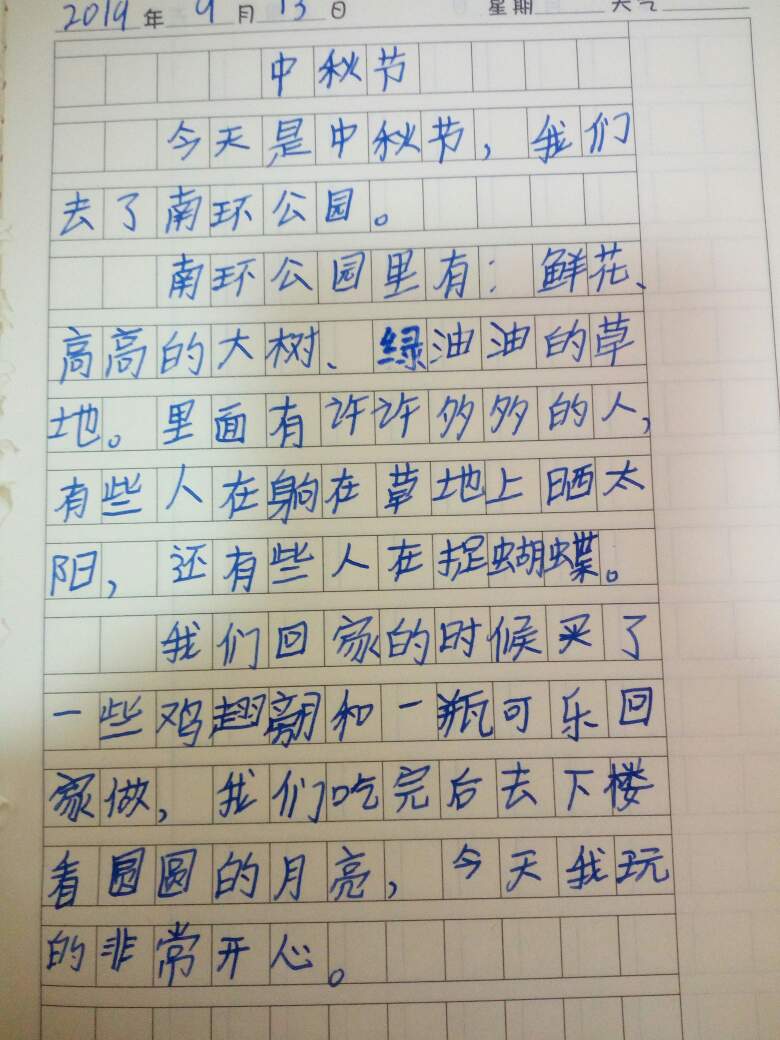 2019年9月13日 星期 天气
中秋节
今天是中秋节，我们
去了南环公园。
南环公园里有：鲜花、
高高的大树、绿油油的草
地。里面有许许多多的人，
有些人在躺在草地上晒太
阳，还有些人在捉蝴蝶。
我们回家的时候买了
一些鸡翅膀和一瓶可乐回
家做，我们吃完后去下楼
看圆圆的月亮，今天我玩
的非常开心。